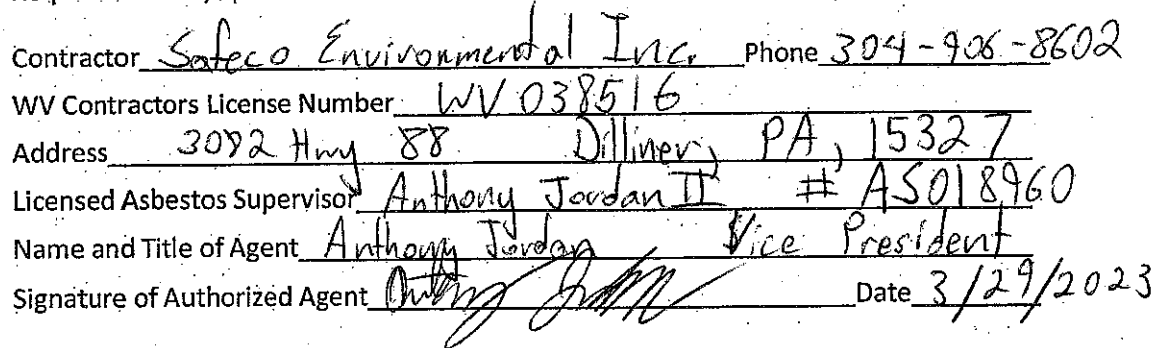 Contractor Safeco Environmental Inc. Phone 304-906-8602
WV Contractors License Number WV038516
Address 3092 Hwy 88 Dilliner, PA, 15327
Licensed Asbestos Supervisor Anthony Jordan II # AS018960
Name and Title of Agent Anthony Jordan Vice President
Signature of Authorized Agent Date 3/29/2023